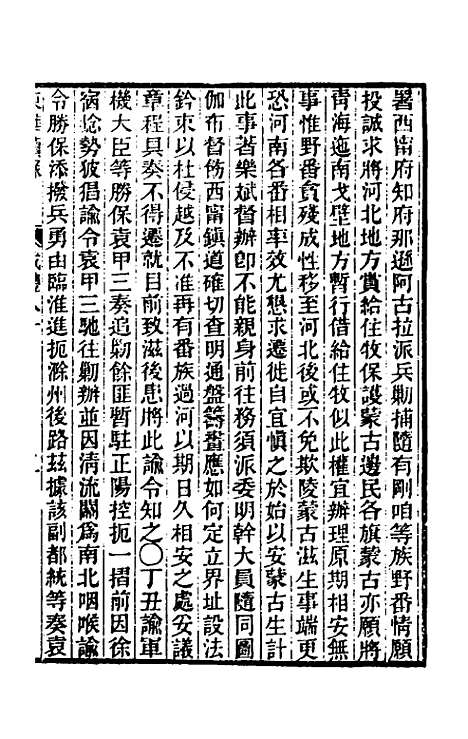 署西甯府知府那遜阿古拉派兵勦捕隨有剛咱等族野番情願
投誠求將河北地方賞給住牧保護蒙古邊民各旗蒙古亦願將
青海迤南戈壁地方暫行借給住牧似此權宜辦理原期相安無
事惟野番貪殘成性移至河北後或不免欺陵蒙古滋生事端更
恐河南各番相率效尤懇求遷徙自宜慎之於始以安蒙古生計
此事著樂斌督辦卽不能親身前往務須派委明幹大員隨同圖
伽布督飭西甯鎮道確切查明通盤籌畫應如何定立界址設法
鈐束以杜侵越及不准再有番族過河以期日久相安之處妥議
章程具奏不得遷就目前致滋後患將此諭令知之〇丁丑諭軍
機大臣等勝保袁甲三奏追勦餘匪暫駐正陽控扼一摺前因徐
宿捻勢狓猖諭令袁甲三馳往勦辦並因清流關爲南北咽喉諭
令勝保添撥兵勇由臨淮進扼滁州後路茲據該副都統等奏袁